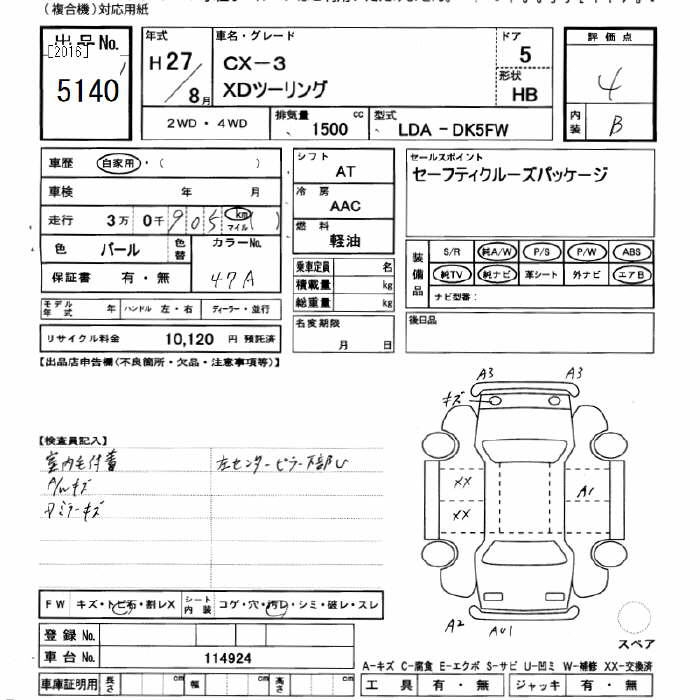 (複合機)対応用紙
出品No.
[2016]
5140
年式
H27/8月
車名・グレード
CX-3
XDツーリング
ドア
5
形状
HB
評価点
4
内装
B
2WD・4WD
排気量
1500 cc
型式
LDA - DK5FW
車歴 自家用・( )
車検 年 月
走行 3万 0千 905 km マイル ( )
色 パール 色替
カラーNo.
47A
保証書 有・無
モデル年式 年 ハンドル 左・右 ディーラー・並行
リサイクル料金 10,120 円 預託済
シフト
AT
冷房
AAC
燃料
軽油
乗車定員 名
積載量 kg
総重量 kg
名変期限
月 日
セールスポイント
セーフティクルーズパッケージ
装備品
S/R 純A/W P/S P/W ABS
純TV 純ナビ 革シート 外ナビ エアB
ナビ型番:
後日品
【出品店申告欄(不良箇所・欠品・注意事項等)】
【検査員記入】
室内毛付着
左センターピラー下部U
A/Wキズ
ミラーキズ
A3
A3
キズ
XX
XX
A1
A2
AU1
スペア
FW キズ・トビ石・割レX
シート内装 コゲ・穴・汚レ・シミ・破レ・スレ
登録No.
車台No. 114924
車庫証明用 長さ cm 幅 cm 高さ cm
A-キズ C-腐食 E-エクボ S-サビ U-凹ミ W-補修 XX-交換済
工具 有・無 ジャッキ 有・無